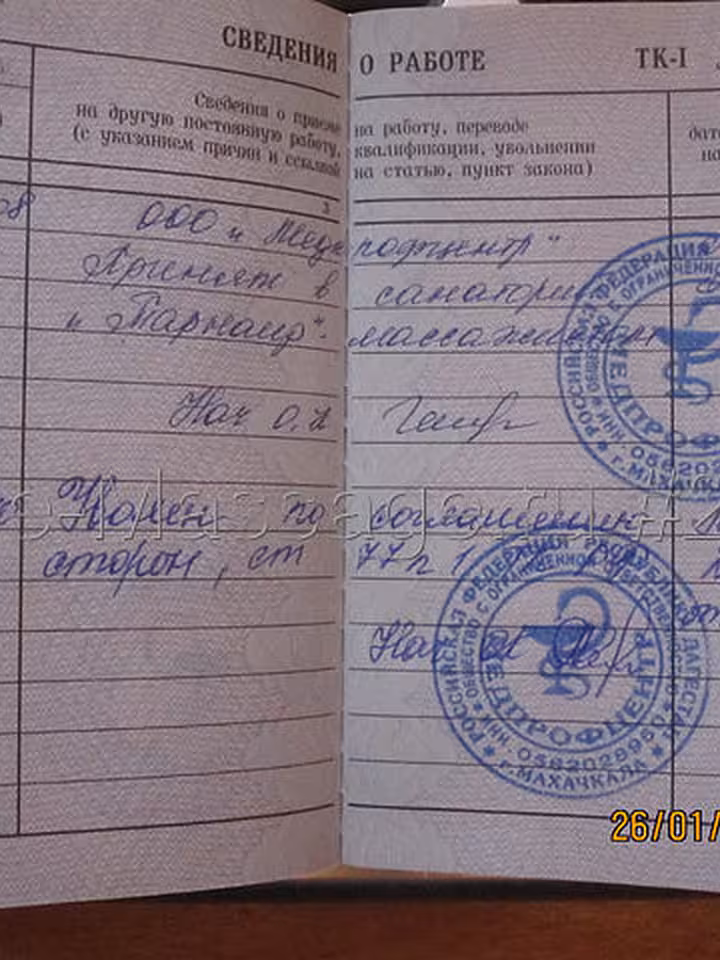 СВЕДЕНИЯ О РАБОТЕ ТК-I
Сведения о приеме на работу, переводе
на другую постоянную работу, квалификации, увольнении
(с указанием причин и ссылкой на статью, пункт закона)
дат
на
3
08
ООО "Медпрофцентр"
Принят в санаторий
"Тарнаир" массажистом
Нач О.К
Уволен по соглашению
сторон, ст 77 п 1
Нач ОК
РОССИЙСКАЯ ФЕДЕРАЦИЯ
МЕДПРОФЦЕНТР
г. МАХАЧКАЛА
РОССИЙСКАЯ ФЕДЕРАЦИЯ РЕСПУБЛИКА ДАГЕСТАН
ОБЩЕСТВО С ОГРАНИЧЕННОЙ ОТВЕТСТВЕННОСТЬЮ
МЕДПРОФЦЕНТР
ИНН. 0562028960
г. МАХАЧКАЛА
26/01/